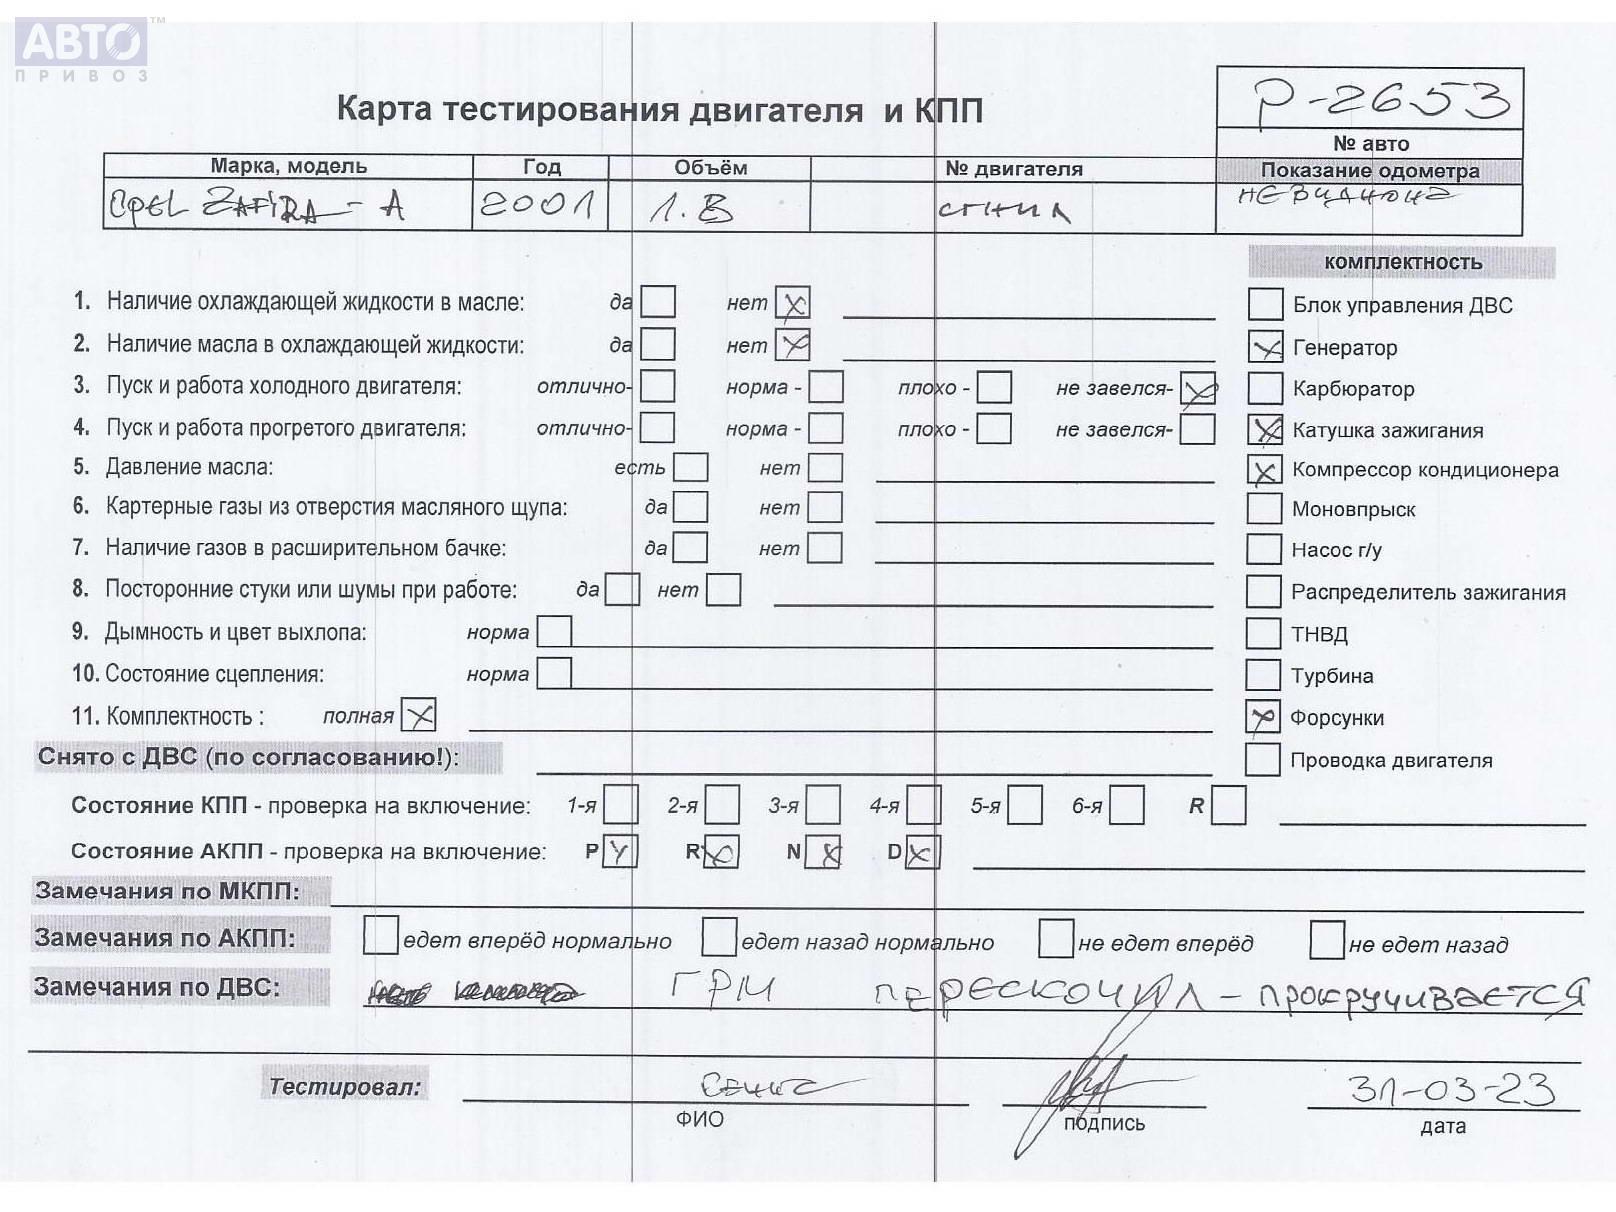 АВТО™
ПРИВОЗ
Карта тестирования двигателя и КПП
Р-2653
№ авто
Марка, модель Год Объём № двигателя Показание одометра
OPEL ZAFIRA - A 2001 1.8 сгнил не видно
комплектность
1. Наличие охлаждающей жидкости в масле: да нет X
Блок управления ДВС
2. Наличие масла в охлаждающей жидкости: да нет X
X Генератор
3. Пуск и работа холодного двигателя: отлично- норма - плохо - не завелся- X
Карбюратор
4. Пуск и работа прогретого двигателя: отлично- норма - плохо - не завелся-
X Катушка зажигания
5. Давление масла: есть нет
X Компрессор кондиционера
6. Картерные газы из отверстия масляного щупа: да нет
Моновпрыск
7. Наличие газов в расширительном бачке: да нет
Насос г/у
8. Посторонние стуки или шумы при работе: да нет
Распределитель зажигания
9. Дымность и цвет выхлопа: норма
ТНВД
10. Состояние сцепления: норма
Турбина
11. Комплектность : полная X
X Форсунки
Снято с ДВС (по согласованию!):
Проводка двигателя
Состояние КПП - проверка на включение: 1-я 2-я 3-я 4-я 5-я 6-я R
Состояние АКПП - проверка на включение: P X R X N X D X
Замечания по МКПП:
Замечания по АКПП: едет вперёд нормально едет назад нормально не едет вперёд не едет назад
Замечания по ДВС: ГРМ перескочил - прокручивается
Тестировал: 31-03-23
ФИО подпись дата